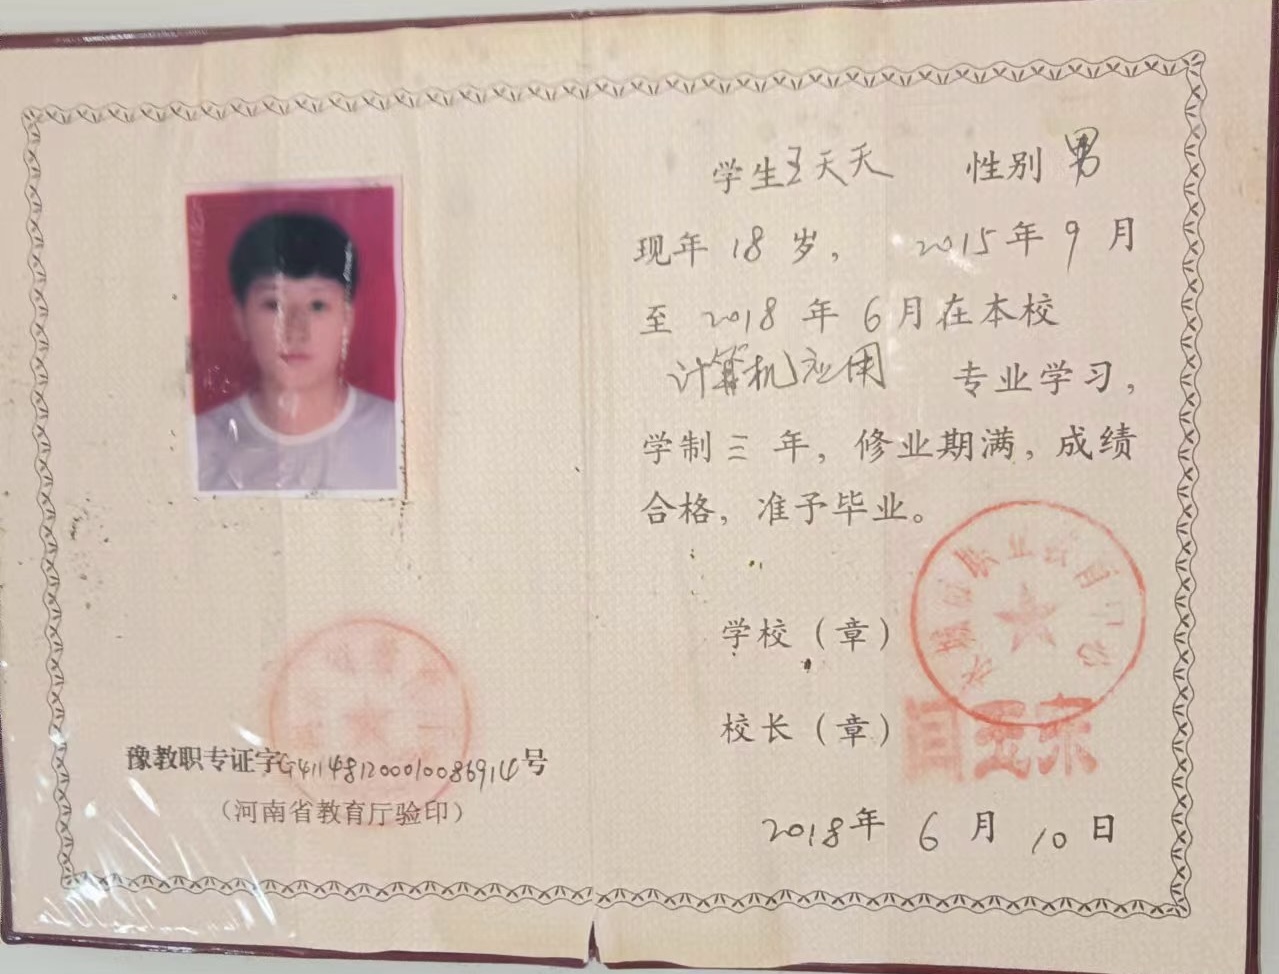 学生王天天 性别 男
现年 18 岁， 2015年 9 月
至 2018 年 6月在本校
计算机应用 专业学习，
学制三 年，修业期满，成绩
合格，准予毕业。
学校（章）
校长（章）
2018年 6 月 10 日
豫教职专证字G411481200010086914号
（河南省教育厅验印）